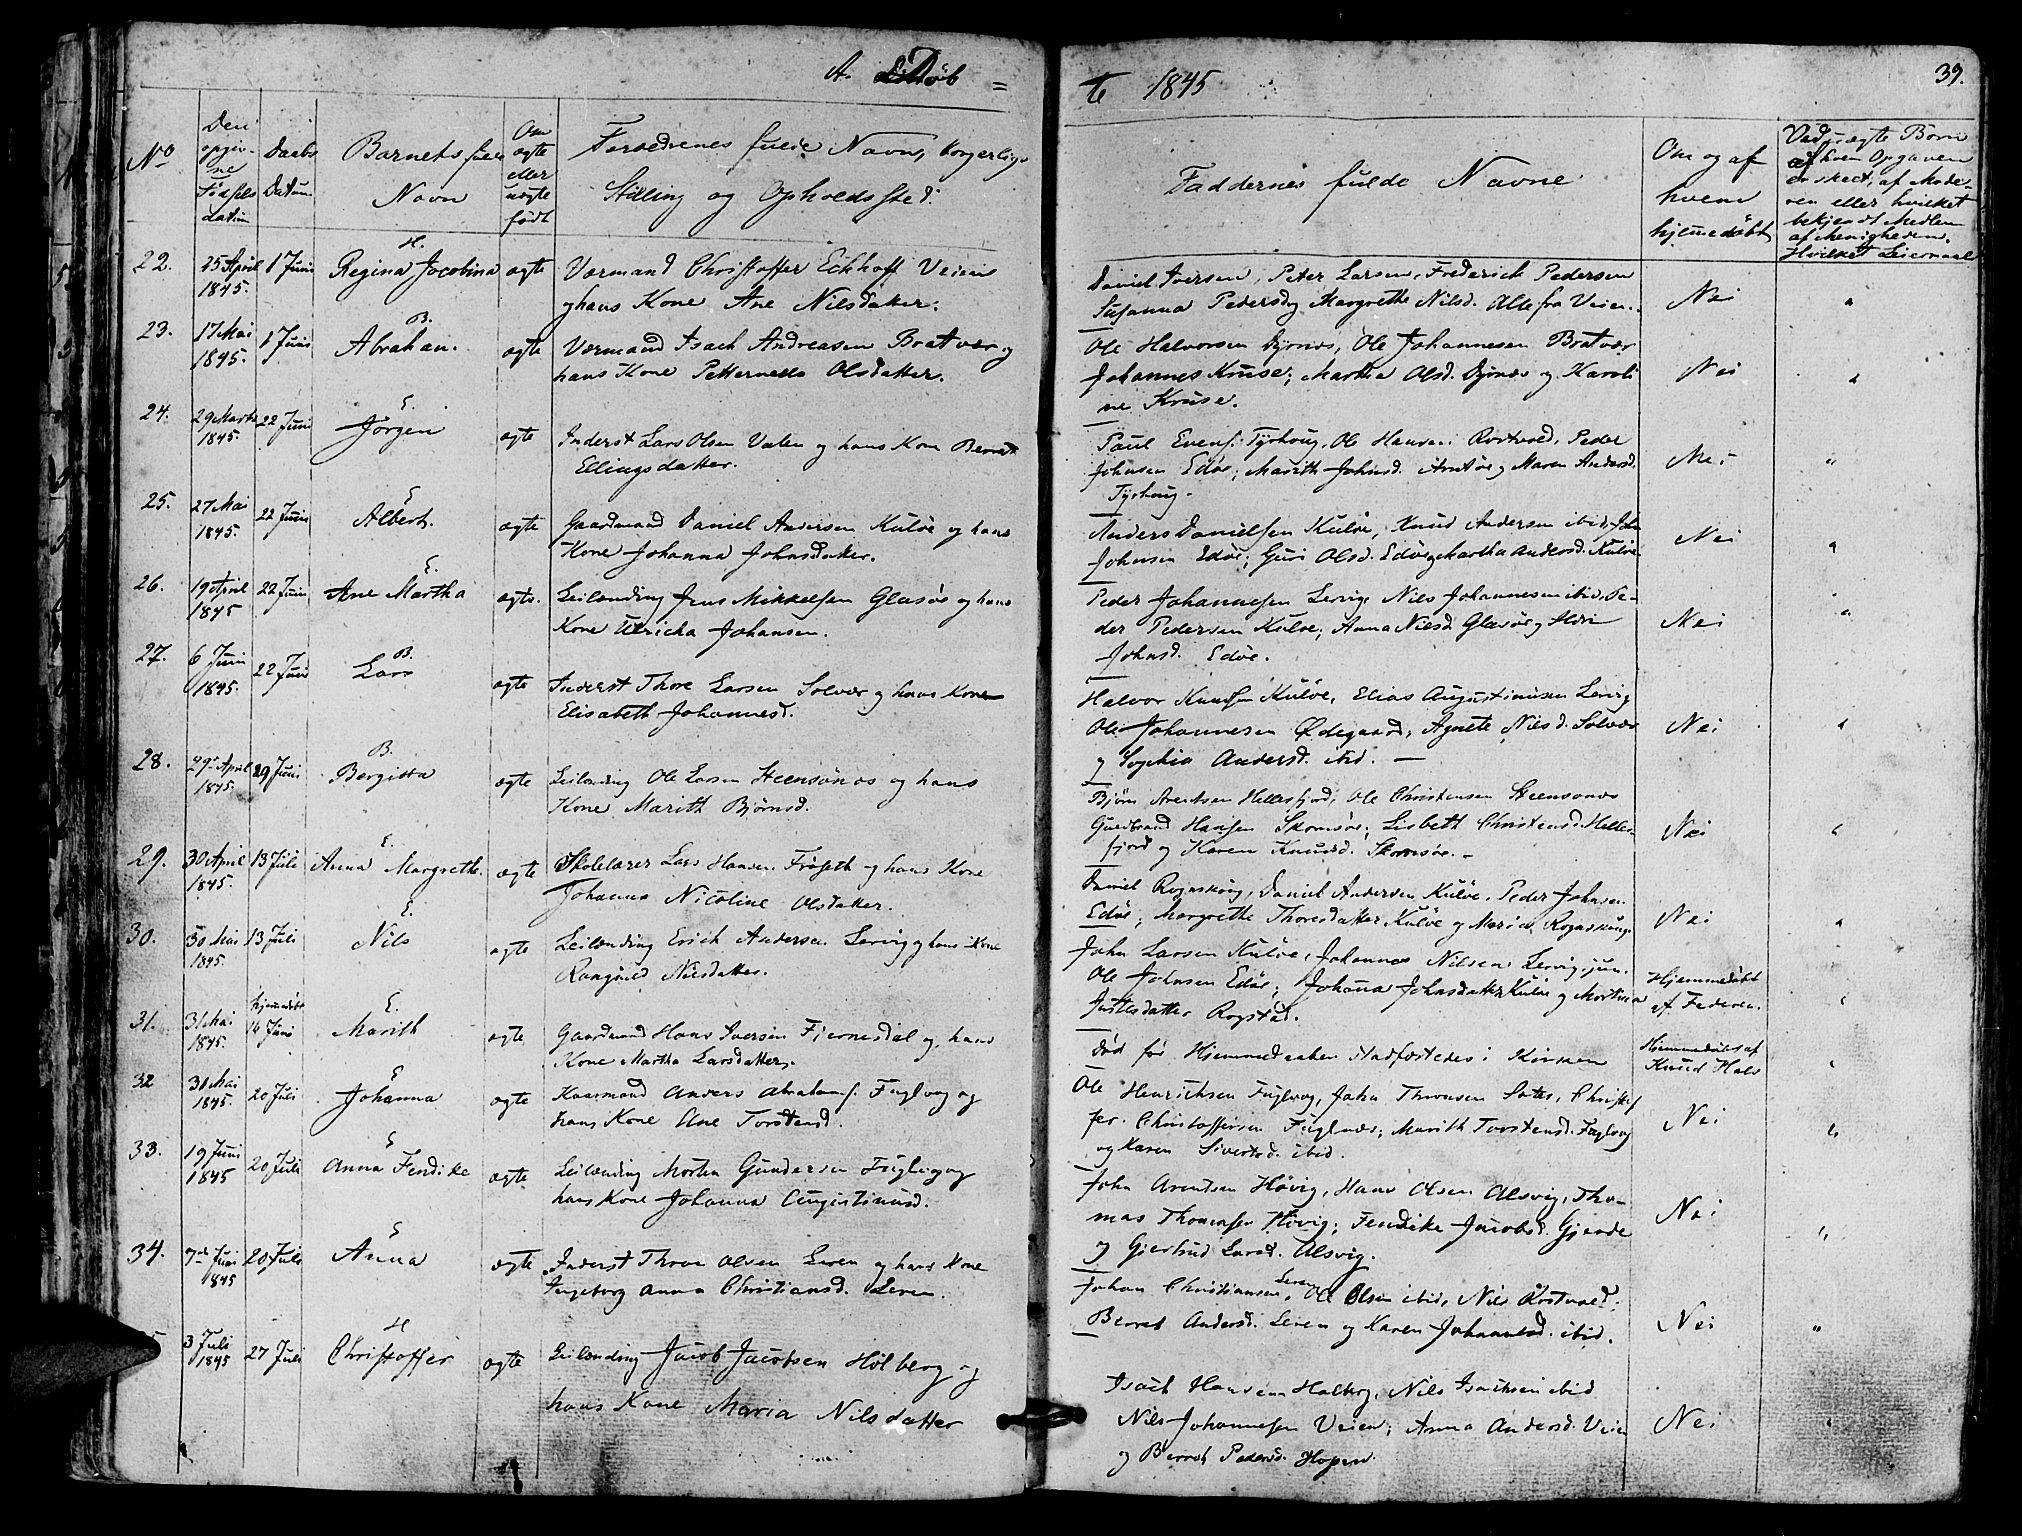 A. Døb = te 1845
39.
No
Den opgivne Fødsels datum
Daabs Datum
Barnets fulde Navn
Om ægte eller uægte født
Forældrenes fulde Navne, borgerlige Stilling og Opholdssted.
Faddernes fulde Navne
Om og af hvem hjemmedøbt
Ved uægte Børn af hvem Opgaven er skeet, af Moderen eller hvilket bekjendt Medlem af Menigheden. Hvilket Leiermaal
22. 25 April 1845. 1 Juni H. Regina Jocobina ægte Værmand Christoffer Eckhoff Veien
og hans Kone Ane Nilsdatter.
Daniel Iversen, Peter Larsen, Frederich Pedersen
Susanna Pedersd og Margrethe Nilsd. Alle fra Veien. Nei "
23. 17 Mai 1845. 1 Juni B. Abraham. ægte Værmand Isach Andreasen Bratvær og
hans Kone Petternelle Olsdatter.
Ole Halvorsen Dyrnæs, Ole Johannesen Bratvær
Johannes Kruse; Martha Olsd. Dyrnæs og Karoli
ne Kruse. Nei "
24. 29 Marts 1845. 22 Juni E. Jörgen ægte Inderst Lars Olsen Valen og hans Kone Beret
Ellingsdatter.
Paul Evens. Tyrhoug, Ole Hansen Rostvold, Peder
Johnsen Edøe; Marith Johnsd. Arntøe og Maren Andersd.
Tyrhoug. Nei "
25. 27 Mai 1845. 22 Juni E Albert. ægte Gaardmand Daniel Andersen Kuløe og hans
Kone Johanna Johnsdatter.
Anders Danielsen Kuløe, Knud Andersen ibid, John
Johnsen Edøe; Guri Olsd. Edøe og Martha Andersd. Kuløe Nei "
26. 19 April 1845 22 Juni E. Ane Martha ægte. Leilænding Jens Mikkelsen Glasøe og hans
Kone Ulricha Johansen.
Peder Johannessen Lervig, Nils Johannesen ibid, Pe-
der Pedersen Kuløe; Anna Nilsd. Glasøe og
Johnsd. Edøe. Nei "
27. 6 Juni 1845. 22 Juni B. Lars ægte Inderst Thore Larsen Solvær og hans Kone
Elisabeth Johannesd.
Halvor Knudsen Kuløe, Elias Augustinusen Lervig
Ole Johannesen Ødegaard, Agnete Nilsd. Solvær
og Sophia Andersd. ibid. — Nei "
28. 29 April 1845. 29 Juni B. Bergitta ægte Leilænding Ole Larsen Steensønæs og hans
Kone Marith Bjørnsd.
Bjørn Arentsen Hellesfjord, Ole Christensen Steensønæs
Gudbrand Hansen Skomsøe; Lisbeth Christensd. Helles-
fjord og Karen Knudsd. Skomsøe. - Nei "
29. 30 April 1845. 13 Juli E. Anna Margrethe. ægte Skolelærer Lars Hansen Frøseth og hans Kone
Johanna Nicoline Olsdatter.
Daniel Rognskoug, Daniel Andersen Kuløe, Peder Johnsen
Edøe; Margrethe Thoresdatter Kuløe og Maria Rognskoug. Nei "
30. 30 Mai 1845. 13 Juli E. Nils ægte Leilænding Erich Andersen Lervig og hans Kone
Rangnild Nilsdatter.
John Larsen Kuløe, Johannes Nilsen Lervig jun.
Ole Johnsen Edøe; Johanna Johnsdatter Kuløe og Martina
Justesdatter Rogstad. Hjemmedøbt
af Faderen. "
31. 31 Mai 1845. hjemmedøbt 14 Juni E. Marith ægte Gaardmand Hans Iversen Fjernesdal og hans
Kone Martha Larsdatter.
Død før Hjemmedaaben stadfæstedes i Kirken Hjemmedøbt af
Knud Hals "
32 31 Mai 1845. 20 Juli E Johanna ægte Huusmand Anders Abrahams. Fuglvog og
hans Kone Ane Torstensd.
Ole Henrichsen Fuglvog, John Thronsen Sætre, Christof
fer Christoffersen Fuglnæs; Marith Torstensd. Fuglvog
og Karen Sivertsd. ibid. Nei "
33. 19 Juni 1845 20 Juli E Anna Fendike ægte Leilænding Morten Gundersen Fuglvog og
hans Kone Johanna Augustinusd.
John Arentsen Høvig, Hans Olsen Alsvig, Tho-
mas Thomesen Høvig; Fendike Jacobsd. Gjerde
og Gjertrud Larsd. Alsvig. Nei "
34. 7de Juni 1845 20 Juli E Anna ægte Inderst Thore Olsen Leren og hans Kone
Ingeborg Anna Christiansd. Leren.
Johan Christiansen Leren, Ole Olsen ibid, Nils Rostvold;
Berret Andersd. Leren og Karen Johannesd. ibid. Nei "
3 Juli 1845 27 Juli H Christoffer ægte Leilænding Jacob Jacobsen Holberg og
hans Kone Maria Nilsdatter
Isach Hansen Holberg, Nils Isachsen ibid
Nils Johannesen Veien; Anna Andersd. Veien
og Berret Pedersd. Hopen. Nei "